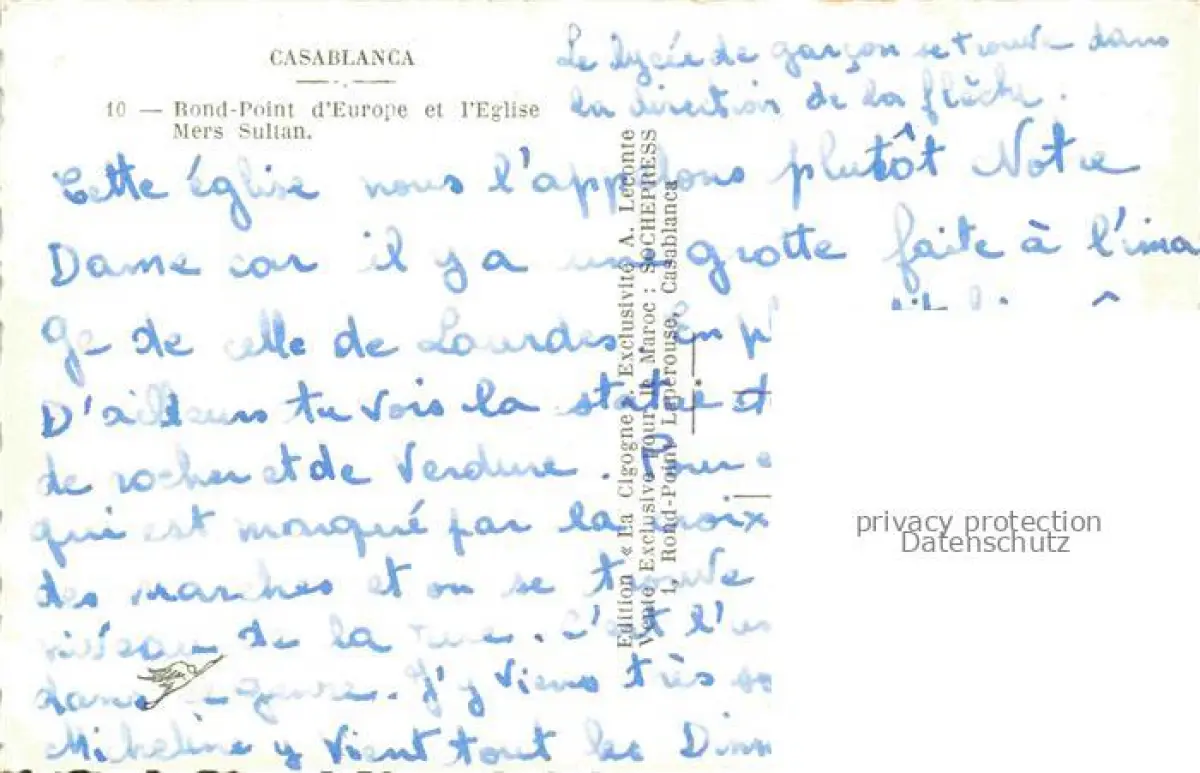 CASABLANCA
10 — Rond-Point d'Europe et l'Eglise
Mers Sultan.
Le lycée de garçon se trouve dans
la direction de la flèche.
Cette église nous l'appelons plutôt Notre
Dame car il y a une grotte faite à l'ima
Ge de celle de Lourdes. En p
D'ailleurs tu vois la statue et
de rocher et de verdure. Pour
qui est marqué par la croix
des marches et on se trouve
niveau de la rue. C'est l'
dans le genre. J'y viens très so
Micheline y vient tout les Dim
Edition « La Cigogne ». Exclusivité A. Leconte
Vente Exclusive pour le Maroc : SOCHEPRESS
1, Rond-Point Lapérouse, Casablanca
privacy protection
Datenschutz